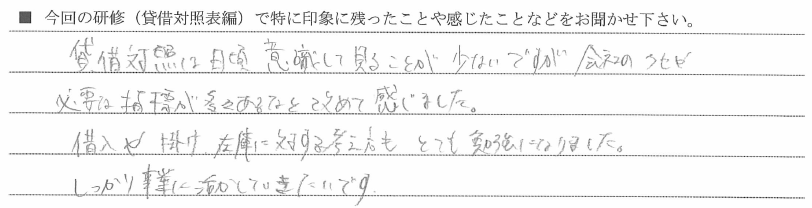 ■ 今回の研修（貸借対照表編）で特に印象に残ったことや感じたことなどをお聞かせ下さい。
貸借対照は日頃意識して見ることが少ないですが会社の
必要な指標が多々あるなと改めて感じました。
借入や掛け、在庫に対する考え方もとても勉強になりました。
しっかり事業に活かしていきたいです